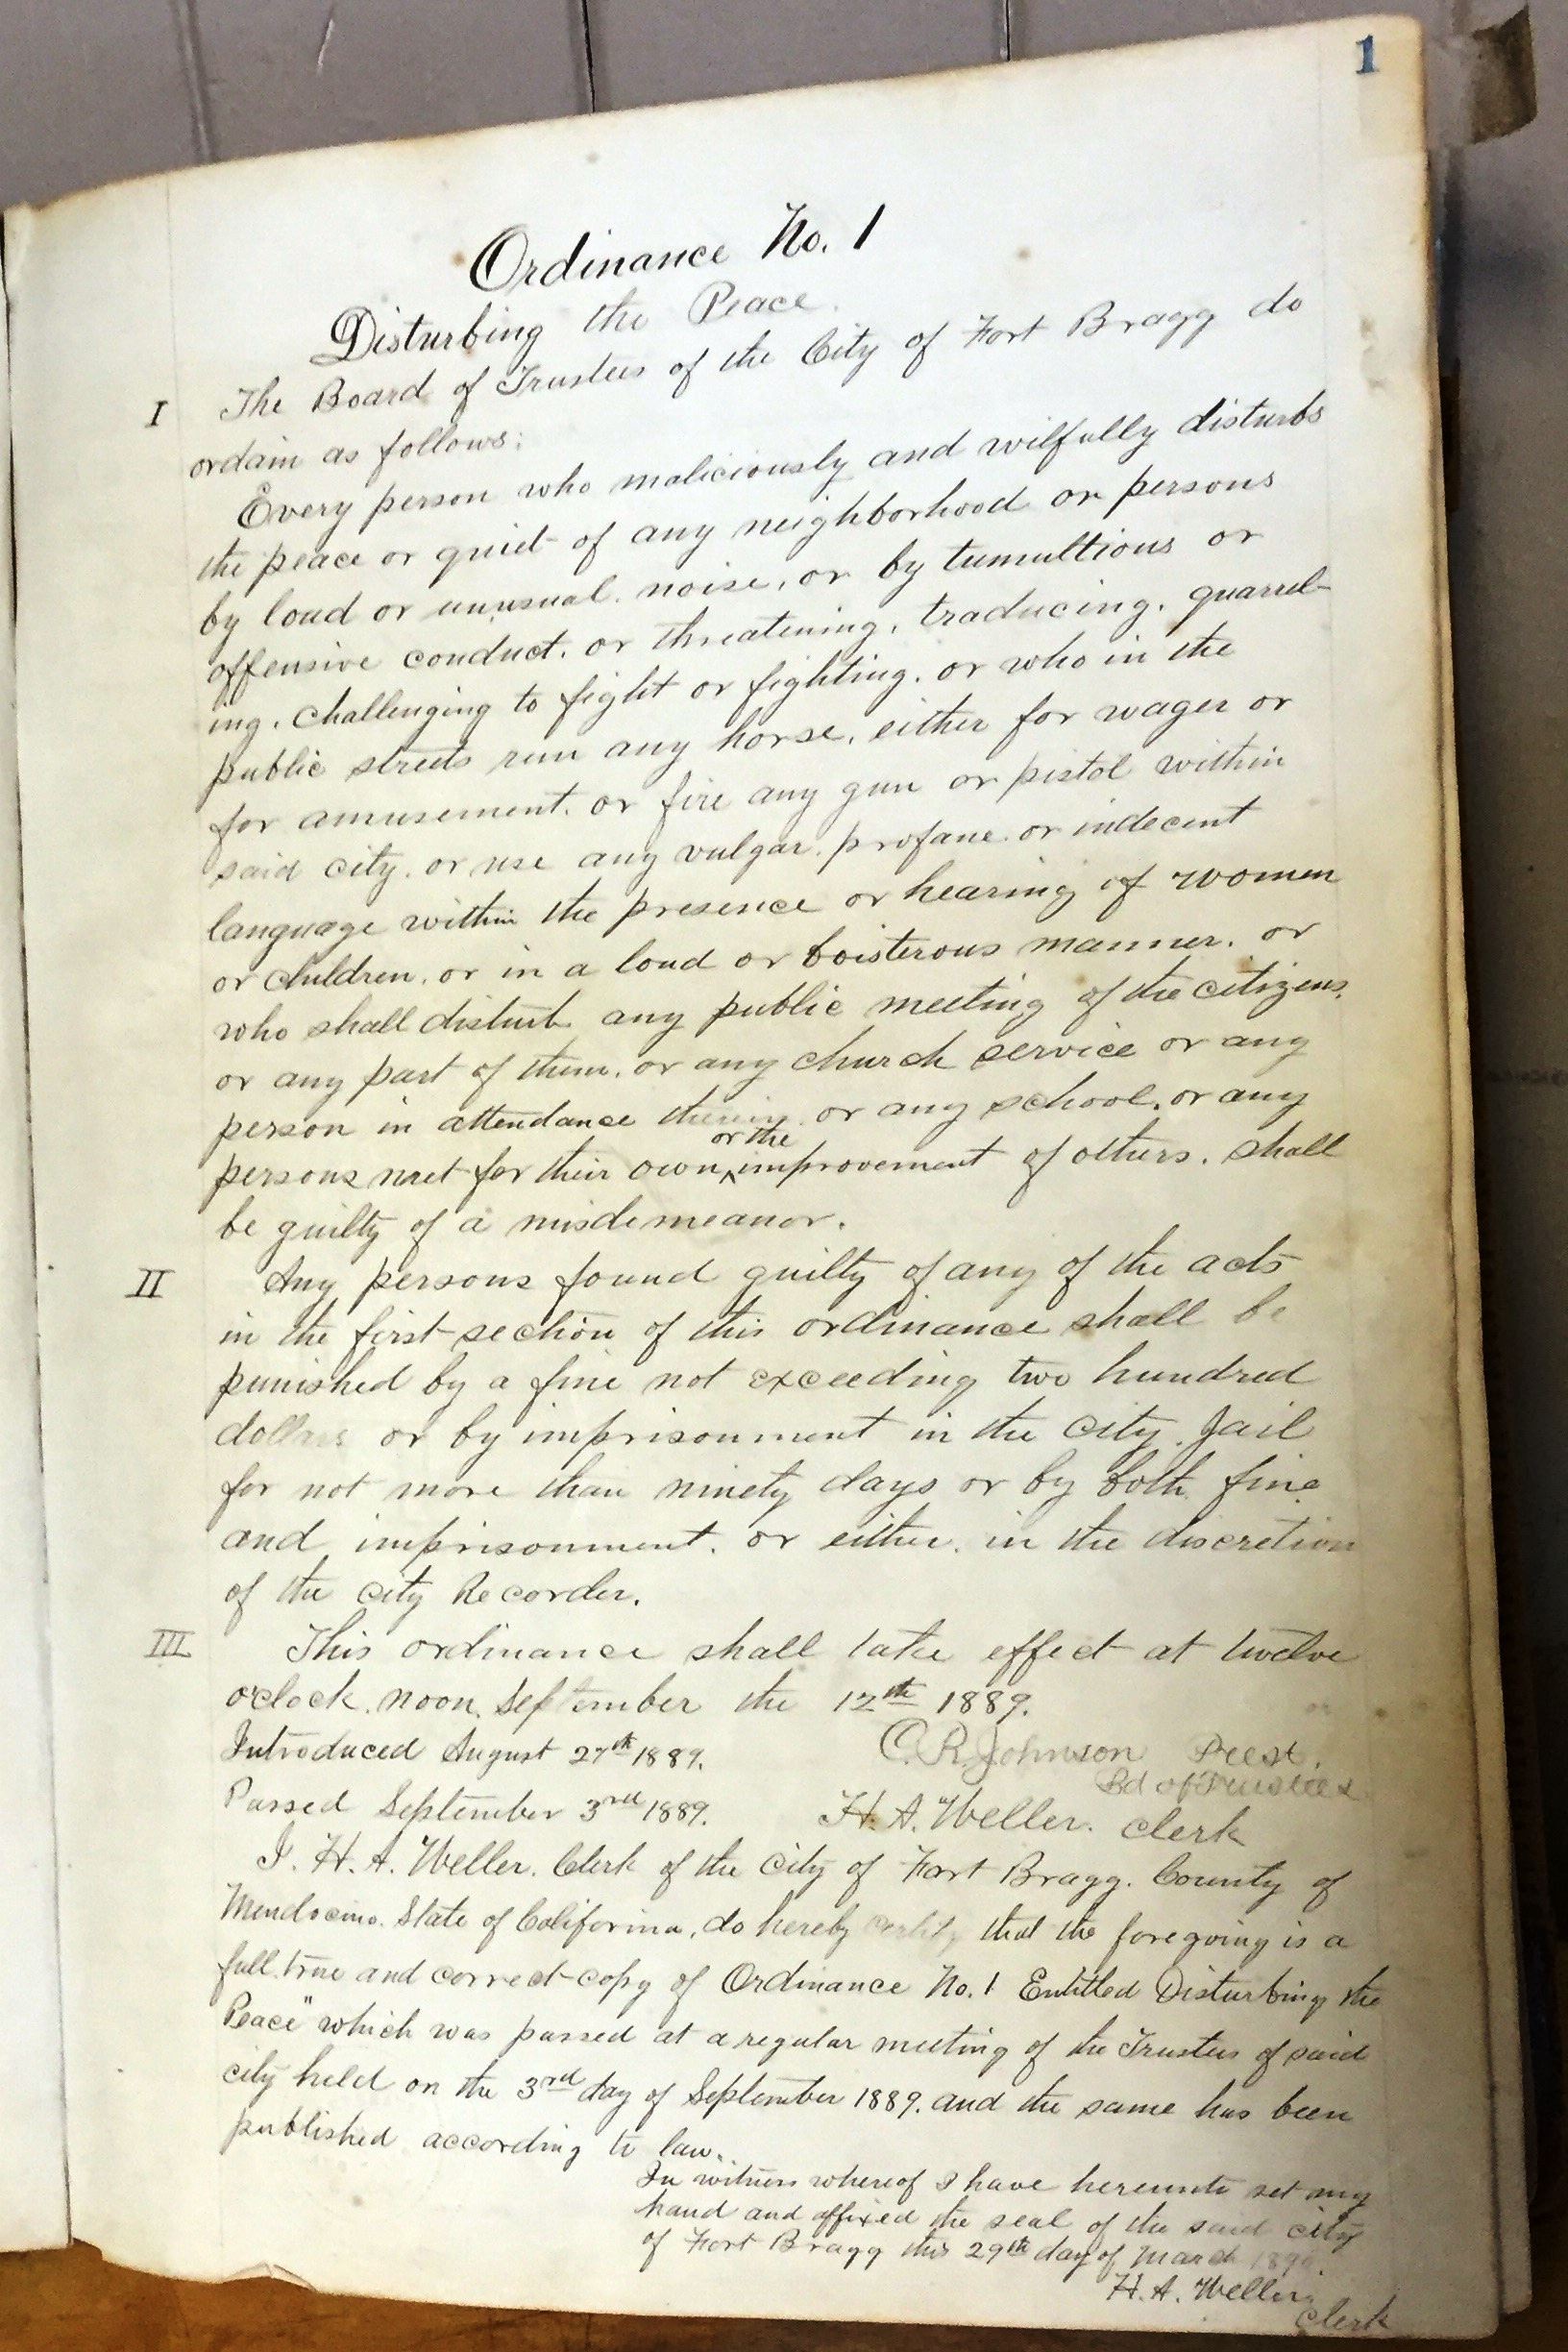 1
Ordinance No. 1
Disturbing the Peace.
I The Board of Trustees of the City of Fort Bragg do
ordain as follows:
Every person who maliciously and wilfully disturbs
the peace or quiet of any neighborhood or persons
by loud or unusual noise, or by tumultious or
offensive conduct, or threatening, traducing, quarrel-
ing, challenging to fight or fighting, or who in the
public streets run any horse, either for wager or
for amusement, or fire any gun or pistol within
said city, or use any vulgar, profane or indecent
language within the presence or hearing of women
or children, or in a loud or boisterous manner, or
who shall disturb any public meeting of the citizens,
or any part of them, or any church service or any
person in attendance therein, or any school, or any
persons met for their own or the improvement of others, shall
be guilty of a misdemeanor.
II Any persons found guilty of any of the acts
in the first section of this ordinance shall be
punished by a fine not exceeding two hundred
dollars or by imprisonment in the city Jail
for not more than ninety days or by both fine
and imprisonment, or either, in the discretion
of the city Recorder.
III This ordinance shall take effect at twelve
o'clock, noon, September the 12th 1889.
Introduced August 27th 1889. C. R. Johnson Prest.
Bd of Trustees
Passed September 3rd 1889. H. A. Weller. Clerk
I. H. A. Weller. Clerk of the City of Fort Bragg. County of
Mendocino. State of California, do hereby certify that the foregoing is a
full, true and correct copy of Ordinance No. 1 Entitled Disturbing the
Peace" which was passed at a regular meeting of the Trustees of said
city held on the 3rd day of September 1889. and the same has been
published according to law.
In witness whereof I have hereunto set my
hand and affixed the seal of the said city
of Fort Bragg this 29th day of March
H. A. Weller.
Clerk